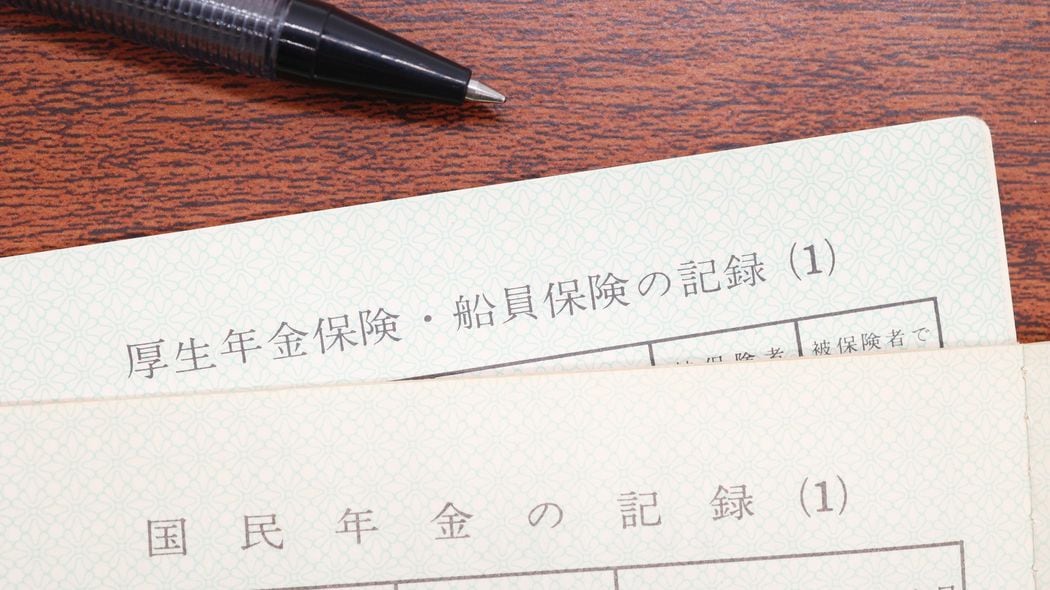 厚生年金保険・船員保険の記録 (1)
被保険者
被保険者で
国民年金の記録 (1)